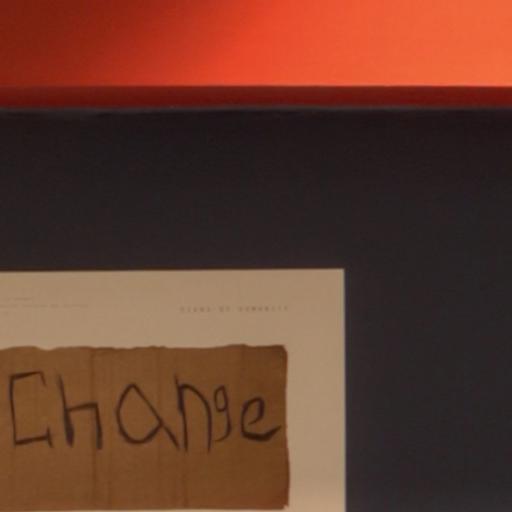 SIGNS OF HUMANITY
Change